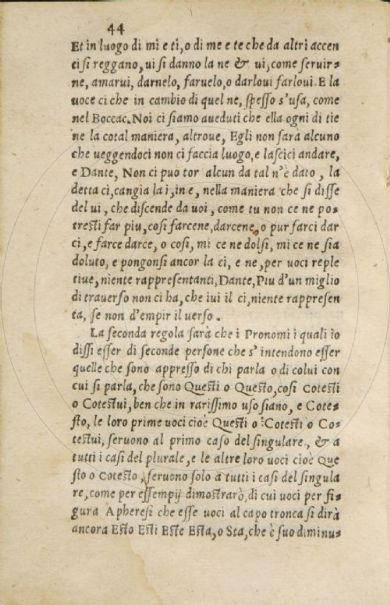 44
Et in luogo di mi e ti, o di me e te che da altri accen
ti si reggano, ui si danno la ne & ui, come seruir=
ne, amarui, darnelo, faruelo, o darloui farloui. E la
uoce ci che in cambio di quel ne, spesso s'usa, come
nel Boccac. Noi ci siamo aueduti che ella ogni di tie
ne la cotal maniera, altroue, Egli non sarà alcuno
che ueggendoci non ci faccia luogo, e lascici andare,
e Dante, Non ci puo tor alcun da tal n'è dato, la
detta ci, cangia la i, in e, nella maniera che si disse
del ui, che discende da uoi, come tu non ce ne po=
tresti far piu, cosi farcene, darcene, o pur farci dar
ci, e farce darce, o cosi, mi ce ne dolsi, mi ce ne sia
doluto, e pongonsi ancor la ci, e ne, per uoci reple
tiue, niente rappresentanti, Dante, Piu d'un miglio
di trauerso non ci ha, che iui il ci, niente rappresen
ta, se non d'empir il uerso.
La seconda regola sarà che i Pronomi i quali io
dissi esser di seconde persone che s'intendono esser
quelle che sono appresso di chi parla o di colui con
cui si parla, che sono Questi o Questo, cosi Cotesti
o Cotestui, ben che in rarissimo uso siano, e Cote=
sto, le loro prime uoci cioè Questi o Cotesti o Co=
testui, seruono al primo caso del singulare, & a
tutti i casi del plurale, e le altre loro uoci cioè Que
sto o Cotesto, seruono solo a tutti i casi del singula
re, come per essempij dimostrarò, di cui uoci per fi=
gura Apheresi che esse uoci al capo tronca si dirà
ancora Esto Esti Este Esta, o Sta, che è suo diminus